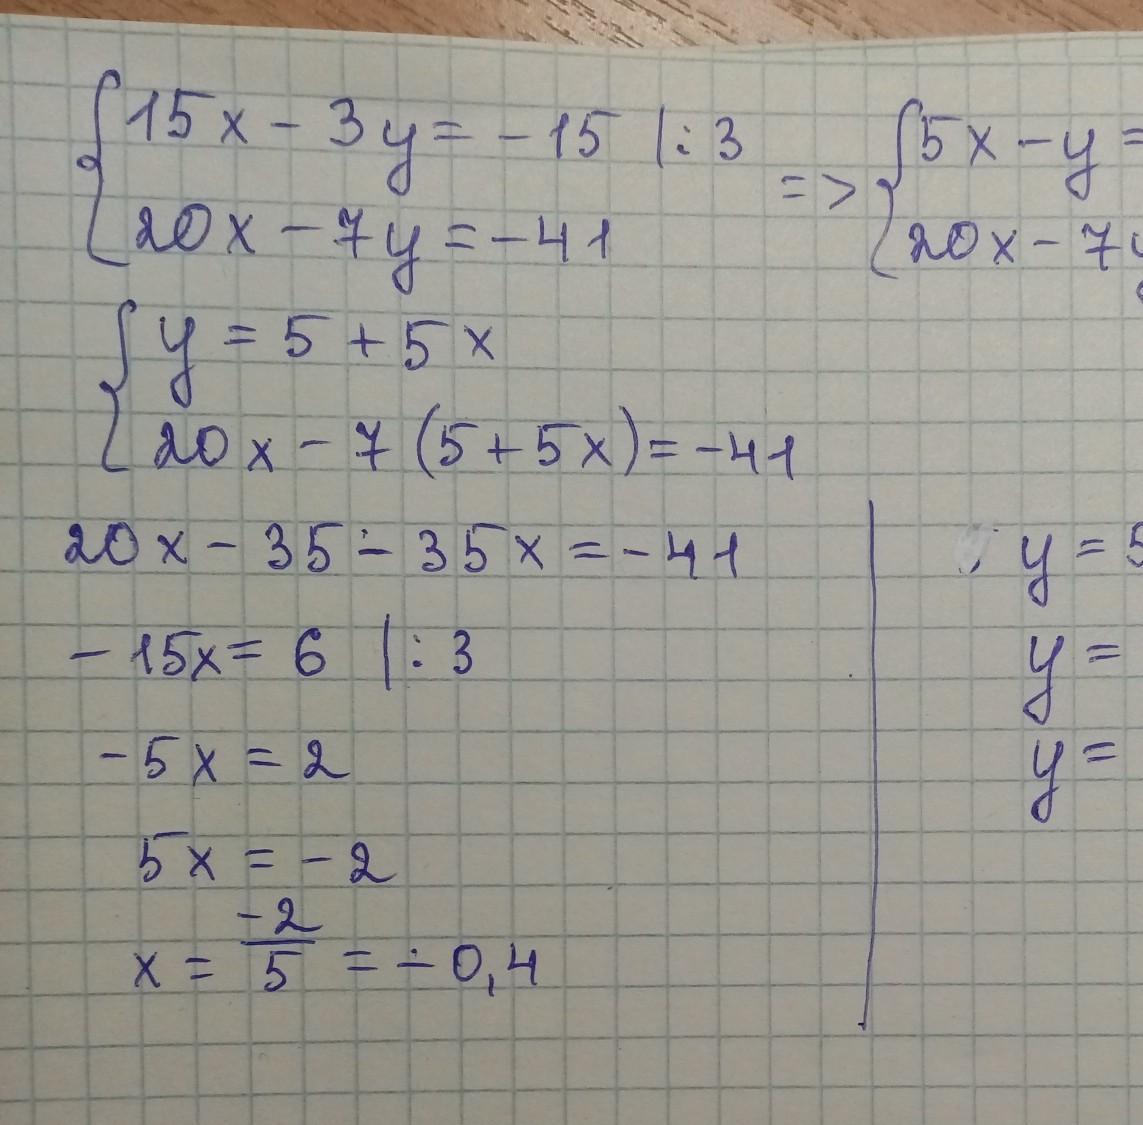 15x - 3y = -15 |: 3 => 5x - y =
20x - 7y = -41 20x - 7y
y = 5 + 5x
20x - 7(5+5x) = -41
20x - 35 - 35x = -41
-15x = 6 |: 3
-5x = 2
5x = -2
x = -2/5 = -0,4
y = 5
y =
y =